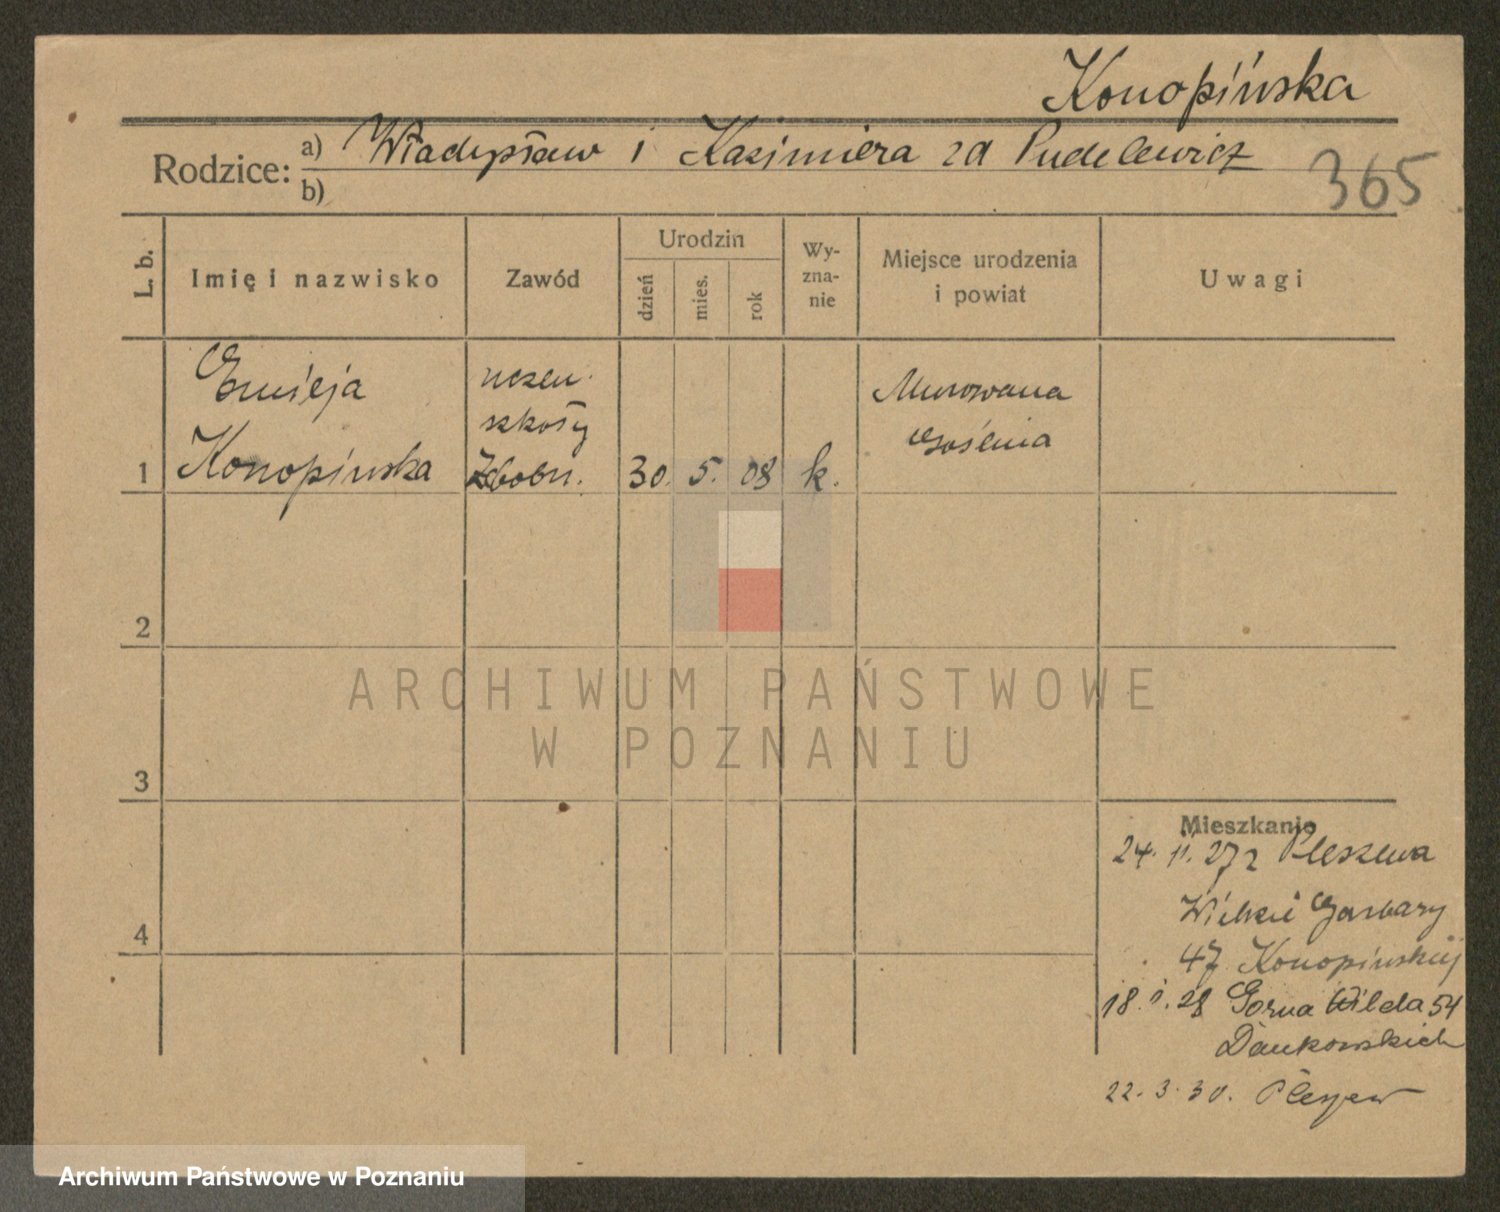 Konopińska
Rodzice: a) Władysław i Kazimiera zd Pudelewicz
b)
365
L. b.
Imię i nazwisko
Zawód
Urodzin
dzień
mies.
rok
Wy-
zna-
nie
Miejsce urodzenia
i powiat
Uwagi
uczen.
szkoły
Murowana
Goślina
1 Konopińska 30. 5. 08 k.
2
3
4
ARCHIWUM PAŃSTWOWE
W POZNANIU
Mieszkanie
24. 11. 27 z Pleszewa
Wielkie Garbary
47 Konopińskiej
18. 1. 28 Gorna Wilda 54
Dankowskich
22. 3. 30. Pleszew
Archiwum Państwowe w Poznaniu